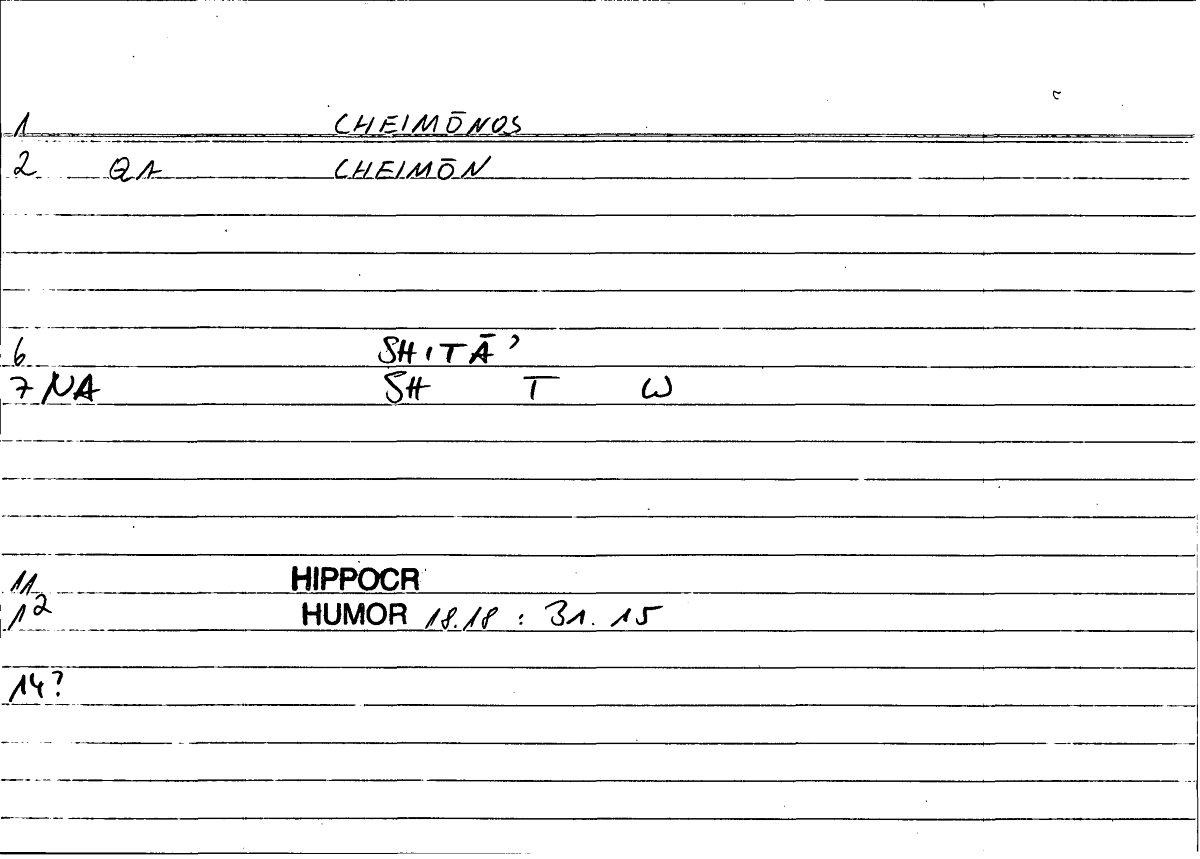 1 CHEIMŌNOS
2 QA CHEIMŌN
6 SHITĀ’
7 NA SH T W
11 HIPPOCR
12 HUMOR 18.18 : 31.15
14?